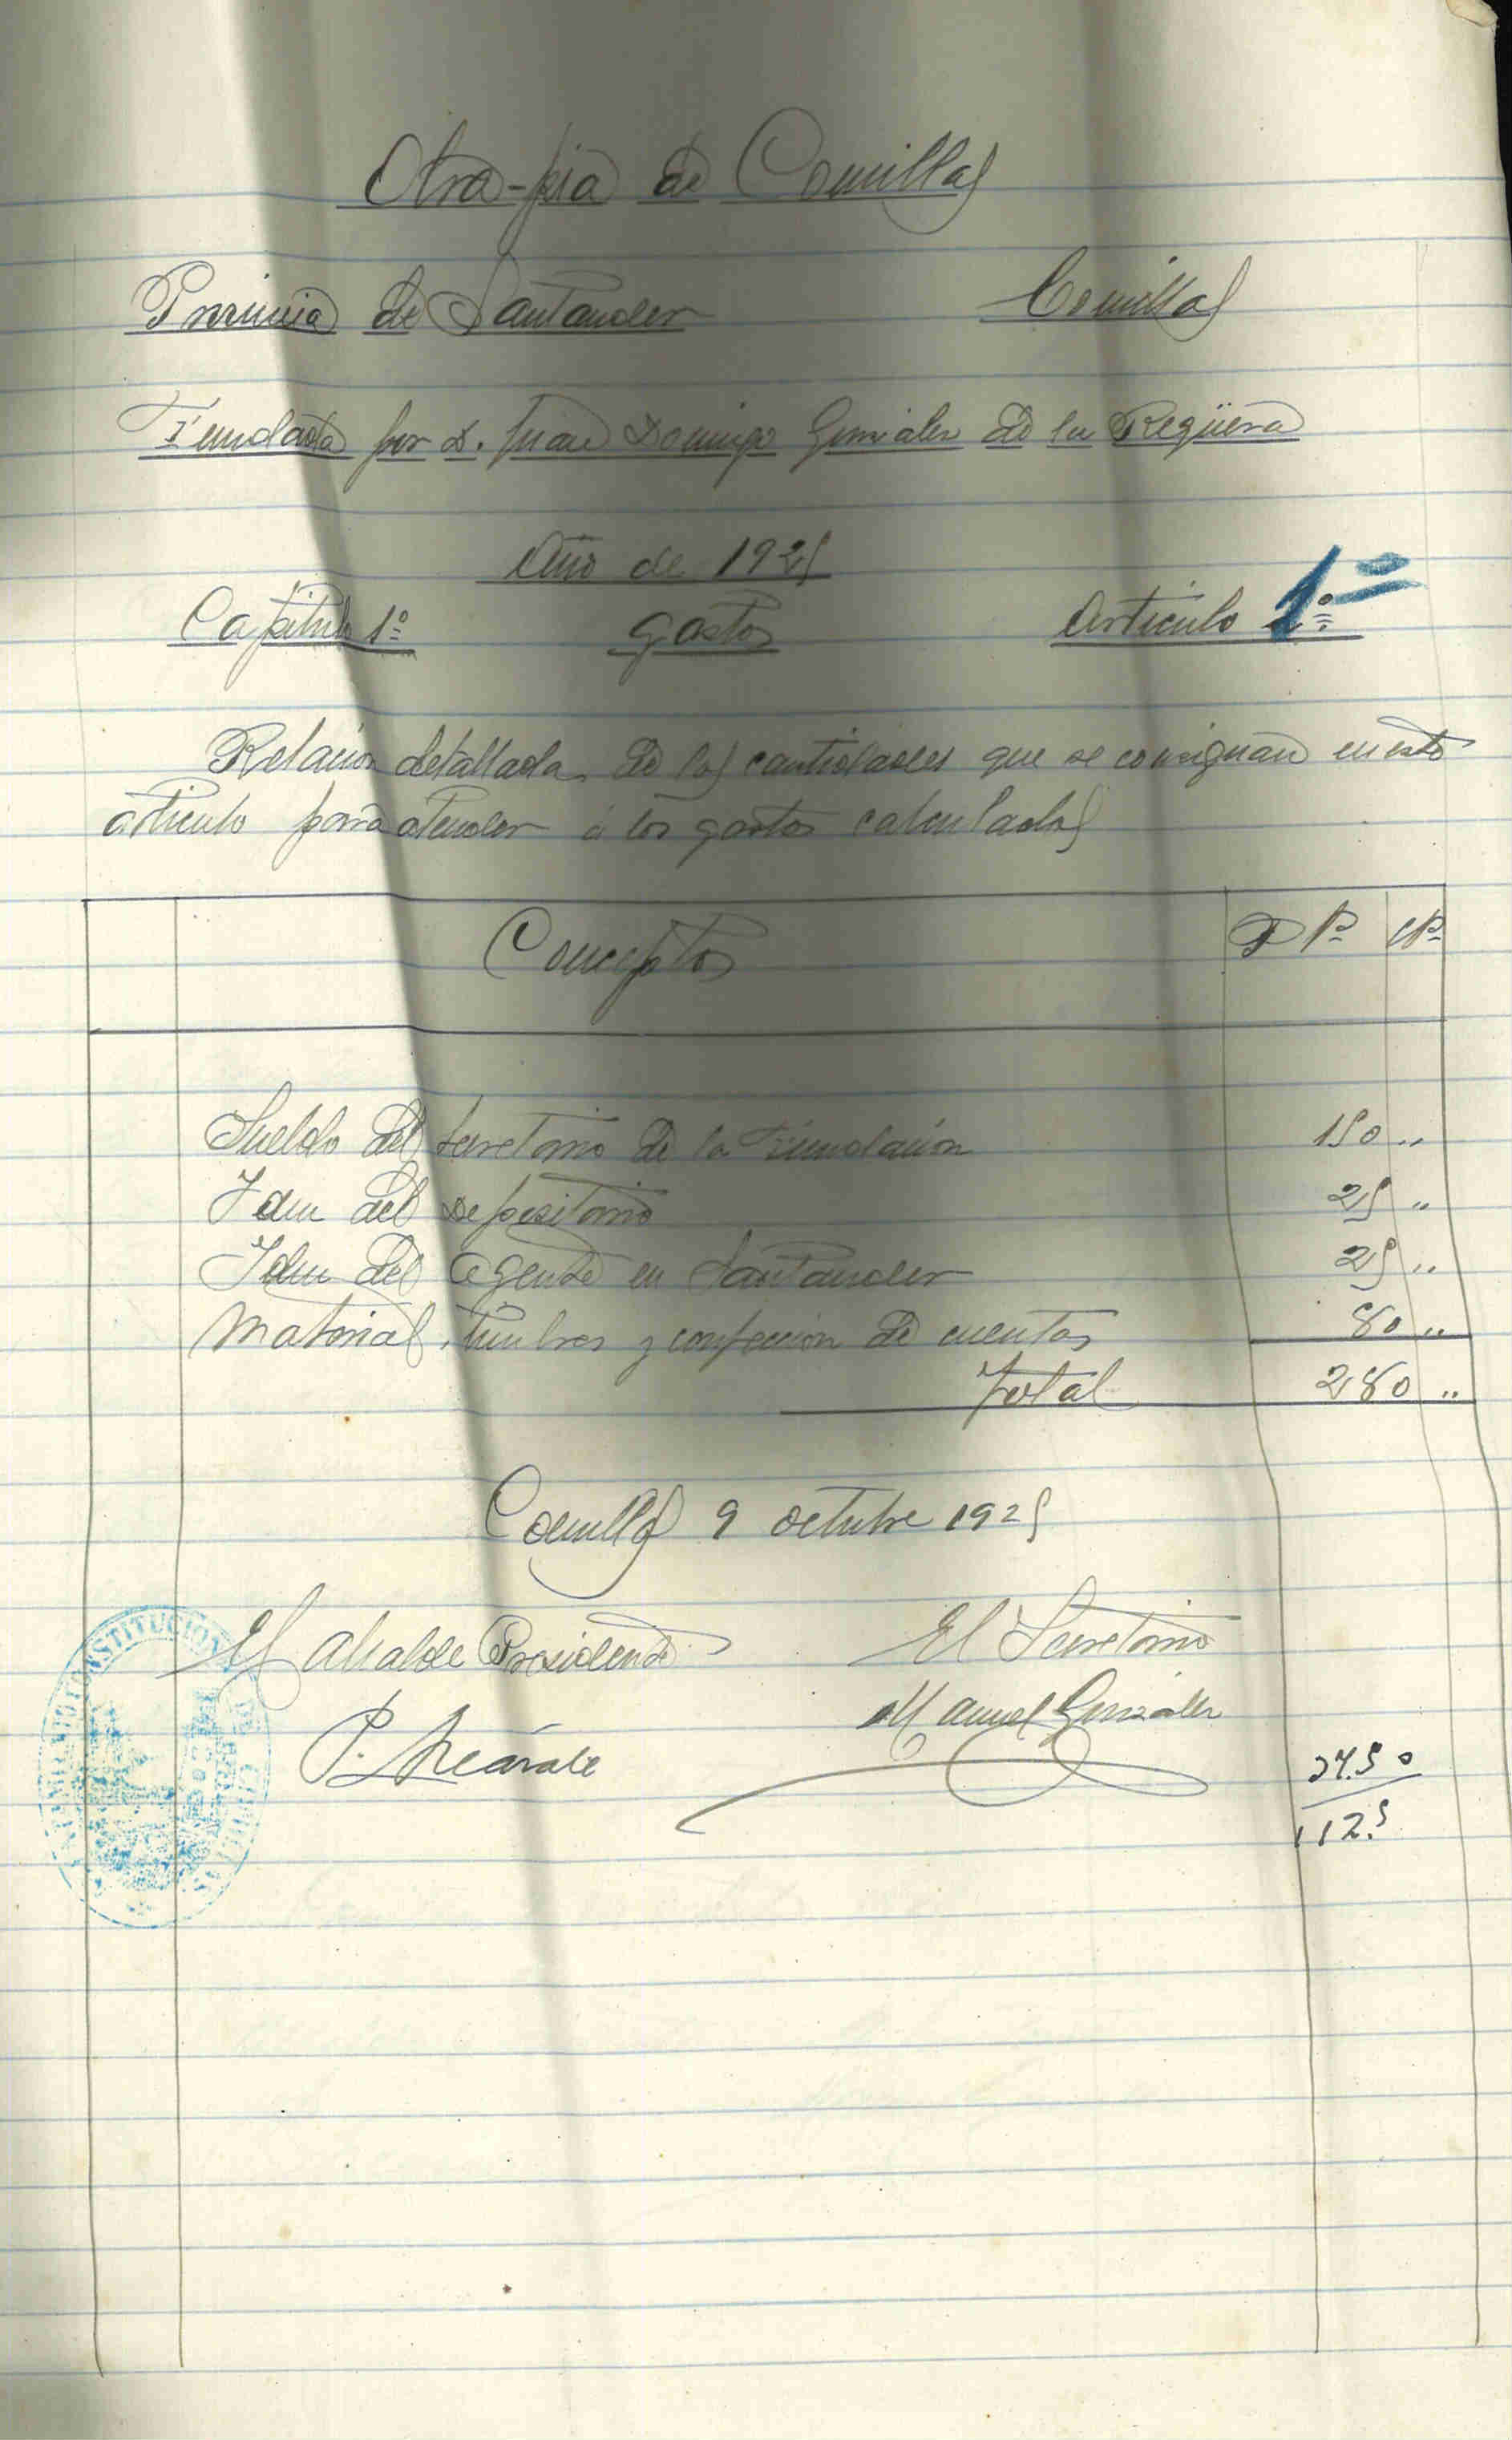 Obra-pia de Comillas
Provincia de Santander Comillas
Fundada por D. Juan Domingo González de la Reguera
Año de 1925
Capítulo 1º Gastos Artículo 1º
Relación detallada de las cantidades que se consignan en este
artículo para atender á los gastos calculados
Conceptos Pts Cts
Sueldo del Secretario de la Fundación 150 "
Idem del Depositario 25 "
Idem del Agente en Santander 25 "
Material, timbres y confección de cuentas 80 "
Total 280 "
Comillas 9 octubre 1925
El Alcalde Presidente El Secretario
Manuel González
112.5
CONSTITUCION